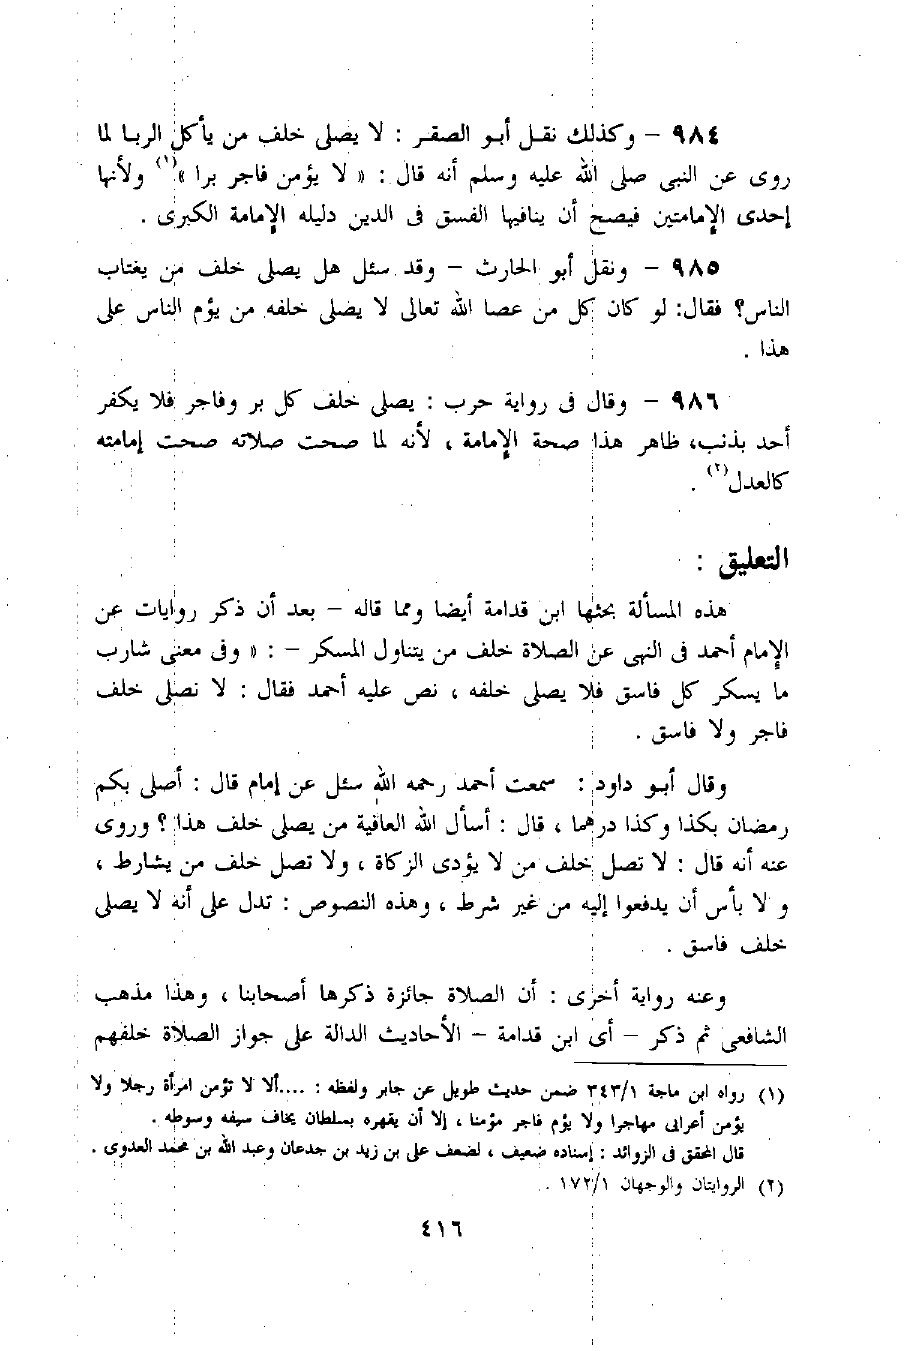 ٩٨٤ – وكذلك نقل أبو الصقر : لا يصلى خلف من يأكل الربا لما
روى عن النبى صلى الله عليه وسلم أنه قال : « لا يؤمن فاجر برا »(١) ولأنها
إحدى الإمامتين فيصح أن ينافيها الفسق فى الدين دليله الإمامة الكبرى .
٩٨٥ – ونقل أبو الحارث – وقد سئل هل يصلى خلف من يغتاب
الناس؟ فقال: لو كان كل من عصا الله تعالى لا يصلى خلفه من يؤم الناس على
هذا .
٩٨٦ – وقال فى رواية حرب : يصلى خلف كل بر وفاجر فلا يكفر
أحد بذنب، ظاهر هذا صحة الإمامة ، لأنه لما صحت صلاته صحت إمامته
كالعدل(٢) .
التعليق :
هذه المسألة بحثها ابن قدامة أيضا ومما قاله – بعد أن ذكر روايات عن
الإمام أحمد فى النهى عن الصلاة خلف من يتناول المسكر – : « وفى معنى شارب
ما يسكر كل فاسق فلا يصلى خلفه ، نص عليه أحمد فقال : لا نصلى خلف
فاجر ولا فاسق .
وقال أبو داود : سمعت أحمد رحمه الله سئل عن إمام قال : أصلى بكم
رمضان بكذا وكذا درهما ، قال : أسأل الله العافية من يصلى خلف هذا ؟ وروى
عنه أنه قال : لا تصل خلف من لا يؤدى الزكاة ، ولا تصل خلف من يشارط ،
و لا بأس أن يدفعوا إليه من غير شرط ، وهذه النصوص : تدل على أنه لا يصلى
خلف فاسق .
وعنه رواية أخرى : أن الصلاة جائزة ذكرها أصحابنا ، وهذا مذهب
الشافعى ثم ذكر – أى ابن قدامة – الأحاديث الدالة على جواز الصلاة خلفهم
(١) رواه ابن ماجة ٣٤٣/١ ضمن حديث طويل عن جابر ولفظه : ....ألا لا تؤمن امرأة رجلا ولا
يؤمن أعرابى مهاجرا ولا يؤم فاجر مؤمنا ، إلا أن يقهره بسلطان يخاف سيفه وسوطه .
قال المحقق فى الزوائد : إسناده ضعيف ، لضعف على بن زيد بن جدعان وعبد الله بن محمد العدوى .
(٢) الروايتان والوجهان ١٧٢/١ .
٤١٦